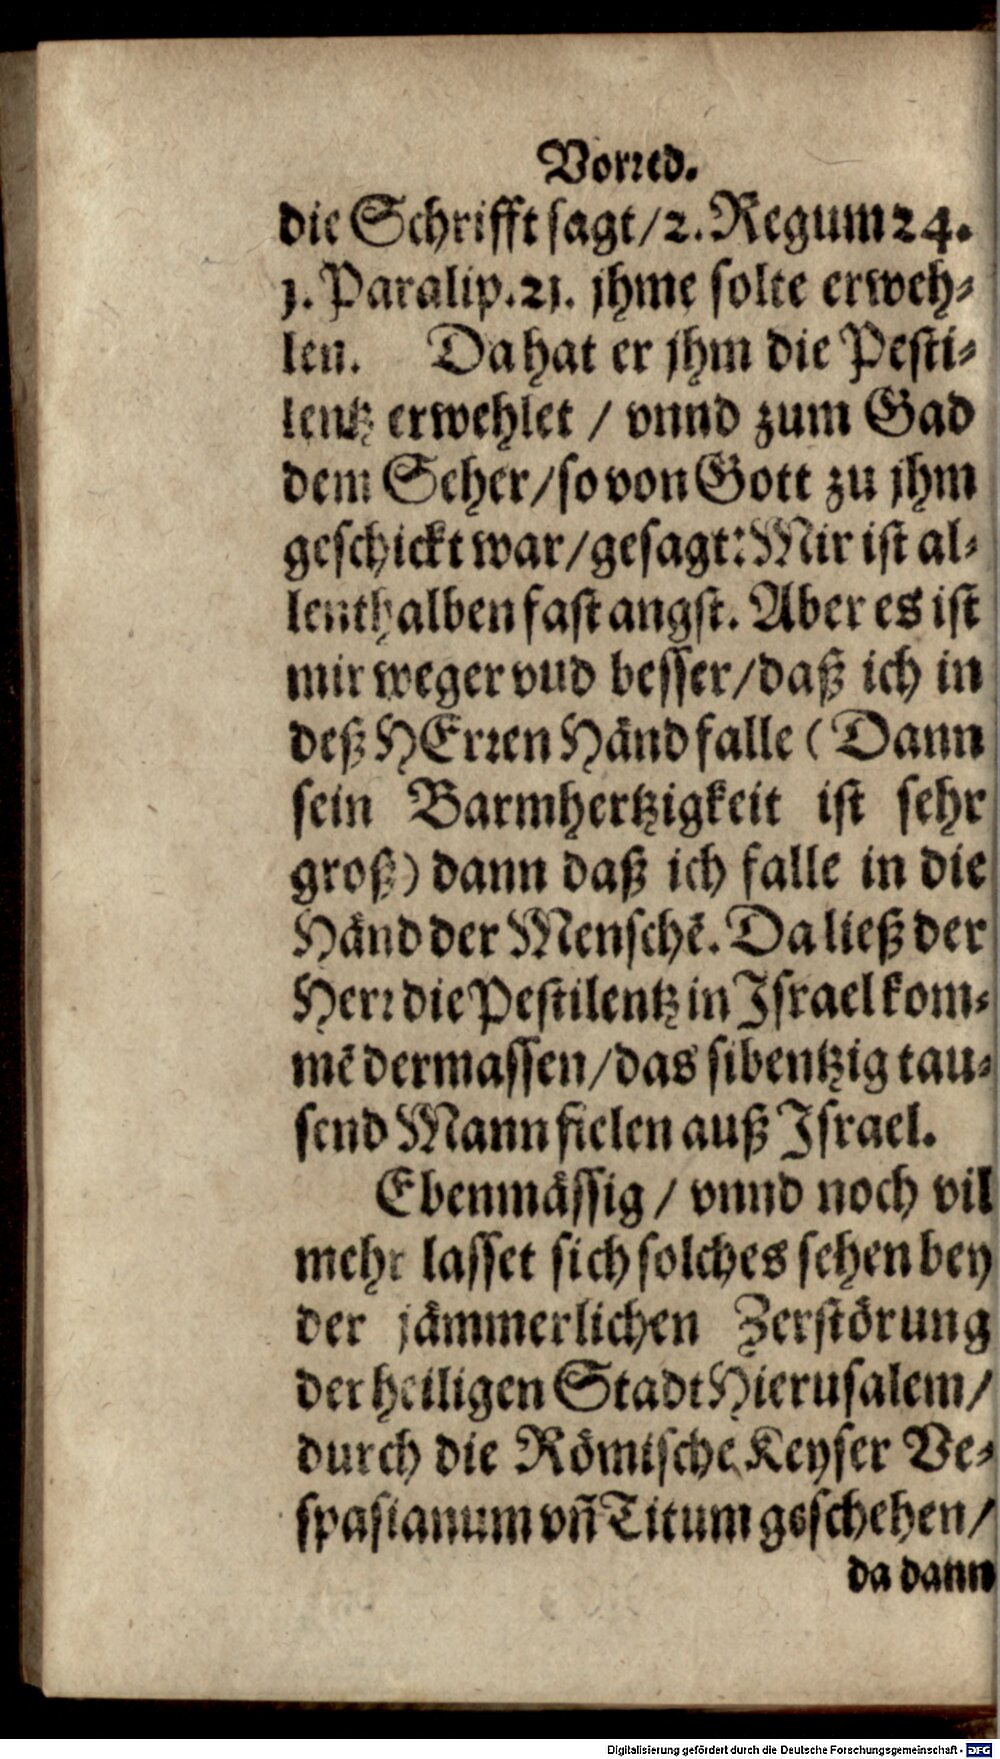 Vorꝛed.
die Schrifft sagt/2. Regum 24.
1. Paralip. 21. jhme solte erweh-
len. Da hat er jhm die Pesti-
lentz erwehlet / vnnd zum Gad
dem Seher/so von Gott zu jhm
geschickt war/gesagt: Mir ist al-
lenthalben fast angst. Aber es ist
mir weger vud besser/daß ich in
deß HErꝛen Händ falle (Dann
sein Barmhertzigkeit ist sehr
groß) dann daß ich falle in die
Händ der Menschē. Da ließ der
Herꝛ die Pestilentz in Israel kom-
mē dermassen/das sibentzig tau-
send Mann fielen auß Israel.
Ebenmässig / vnnd noch vil
mehr lasset sich solches sehen bey
der jämmerlichen Zerstörung
der heiligen Stadt Hierusalem/
durch die Römische Keyser Ve-
spasianum vñ Titum geschehen/
da dann
Digitalisierung gefördert durch die Deutsche Forschungsgemeinschaft - DFG